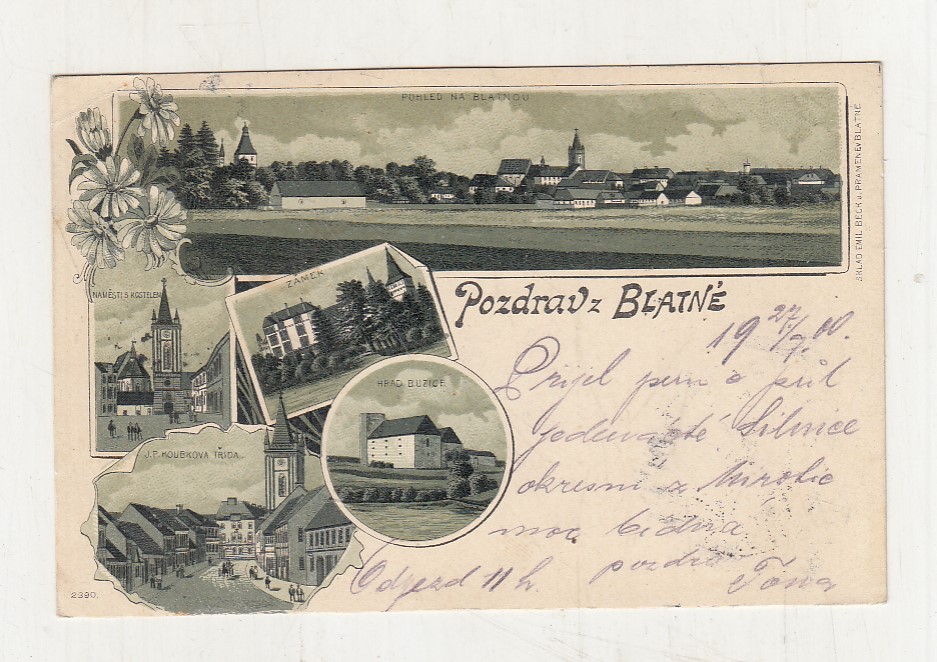 POHLED NA BLATNOU
SKLAD EMIL BECK U PRAMENE V BLATNÉ
NAMĚSTÍ S KOSTELEM
ZÁMEK
Pozdrav z BLATNÉ
HRAD BUZICE
J. P. KOUBKOVA TŘIDA
2390.
19 27/7 00.
Přijel jsem o půl
jedenácté Silnice
okresní z Mirotic
moc bídna
pozdra
Odjezd 11 h. Tóna